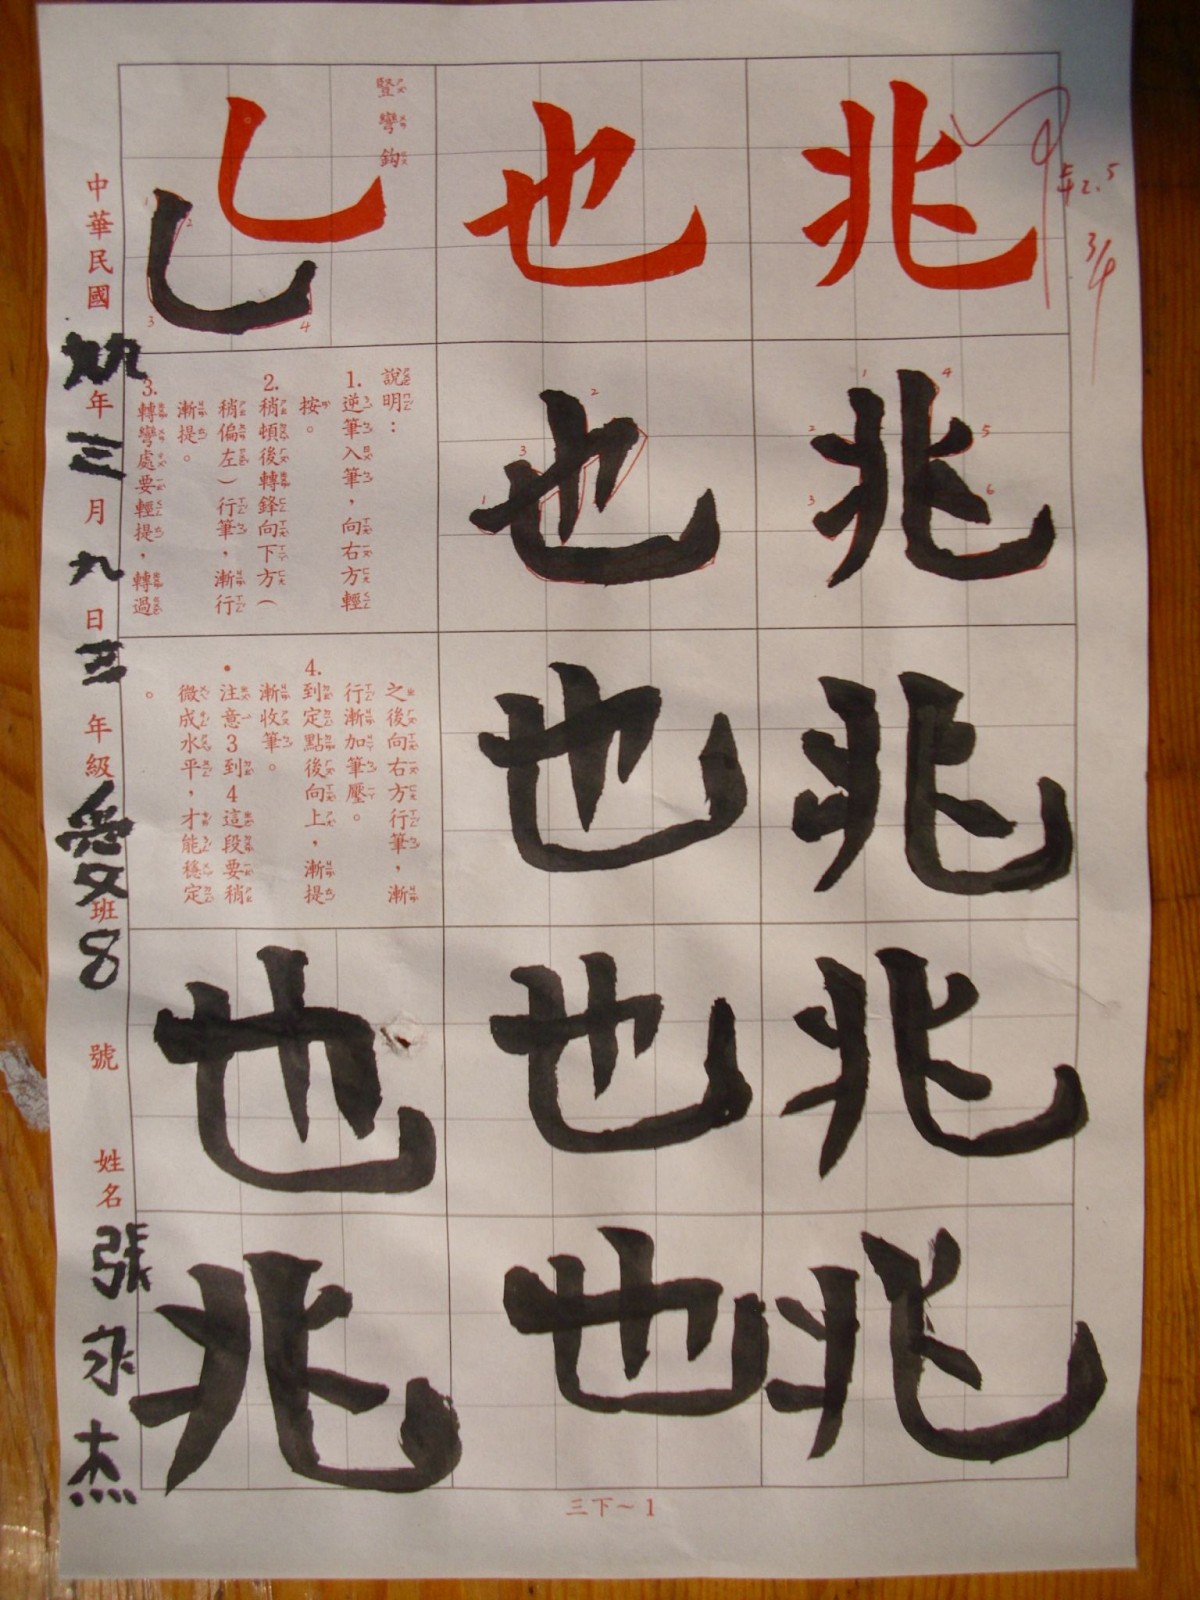 兆
兆
兆
兆
兆
也
也
也
也
也
豎彎鈎
說明：
1.逆筆入筆，向右方輕
按。
2.稍頓後轉鋒向下方（
稍偏左）行筆，漸行
漸提。
3.轉彎處要輕提，轉過
之後向右方行筆，漸
行漸加筆壓。
4.到定點後向上，漸提
漸收筆。
•注意3到4這段要稍
微成水平，才能穩定
。
也
兆
中華民國年三月九日三年級愛班8號 姓名張永杰
三下～1
3/4